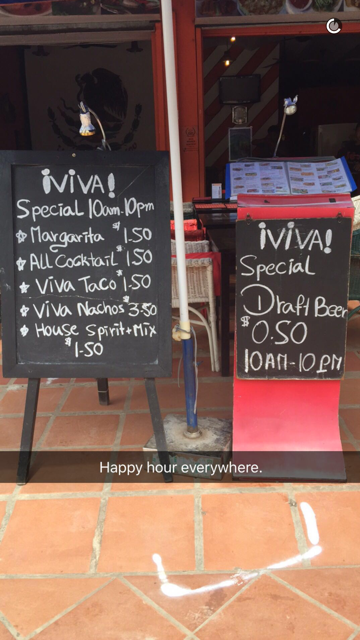 ¡VIVA!
Special 10am-10pm
Margarita $1.50
All Cocktail $1.50
Viva Taco $1.50
ViVa Nachos $3.50
House Spirit+Mix
$1.50
¡ViVA!
Special
Draft Beer
$0.50
10AM-10PM
Happy hour everywhere.